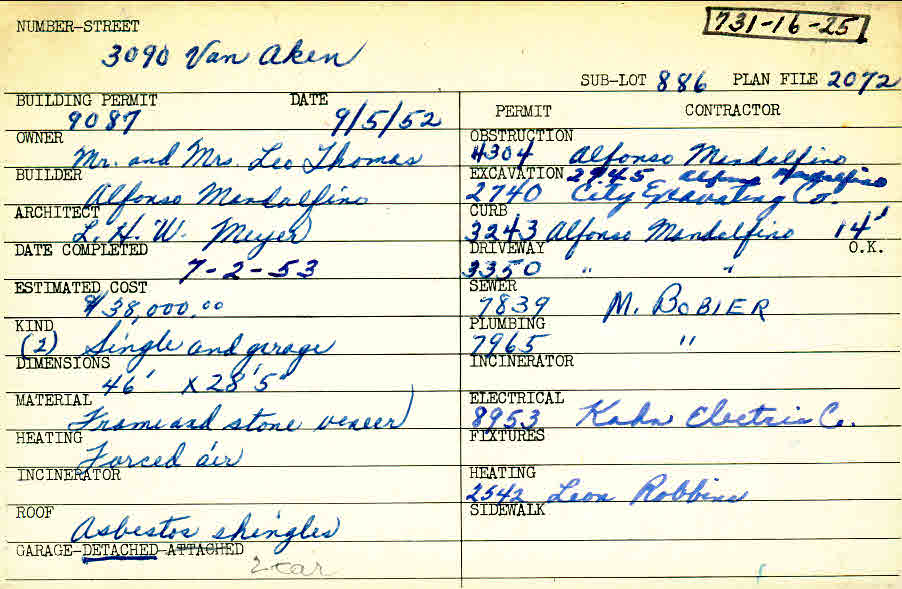 731-16-25
NUMBER-STREET
3090 Van Aken
SUB-LOT 886 PLAN FILE 2072
BUILDING PERMIT DATE
9087 9/5/52
OWNER
Mr. and Mrs. Leo Thomas
BUILDER
Alfonso Mandalfino
ARCHITECT
L. H. W. Meyer
DATE COMPLETED
7-2-53
ESTIMATED COST
$38,000.00
KIND
(2) Single and garage
DIMENSIONS
46' X 28'5"
MATERIAL
Frame and stone veneer
HEATING
Forced air
INCINERATOR
ROOF
Asbestos shingles
GARAGE-DETACHED-ATTACHED
2-car
PERMIT CONTRACTOR
OBSTRUCTION
4304 Alfonso Mandalfino
EXCAVATION 2745 Alfonso Mandalfino
2740 City Co.
CURB
3243 Alfonso Mandalfino 14'
DRIVEWAY O.K.
3350 " "
SEWER
7839 M. BOBIER
PLUMBING
7965 "
INCINERATOR
ELECTRICAL
8953 Kahn Electric Co.
FIXTURES
HEATING
2542 Leon Robbins
SIDEWALK